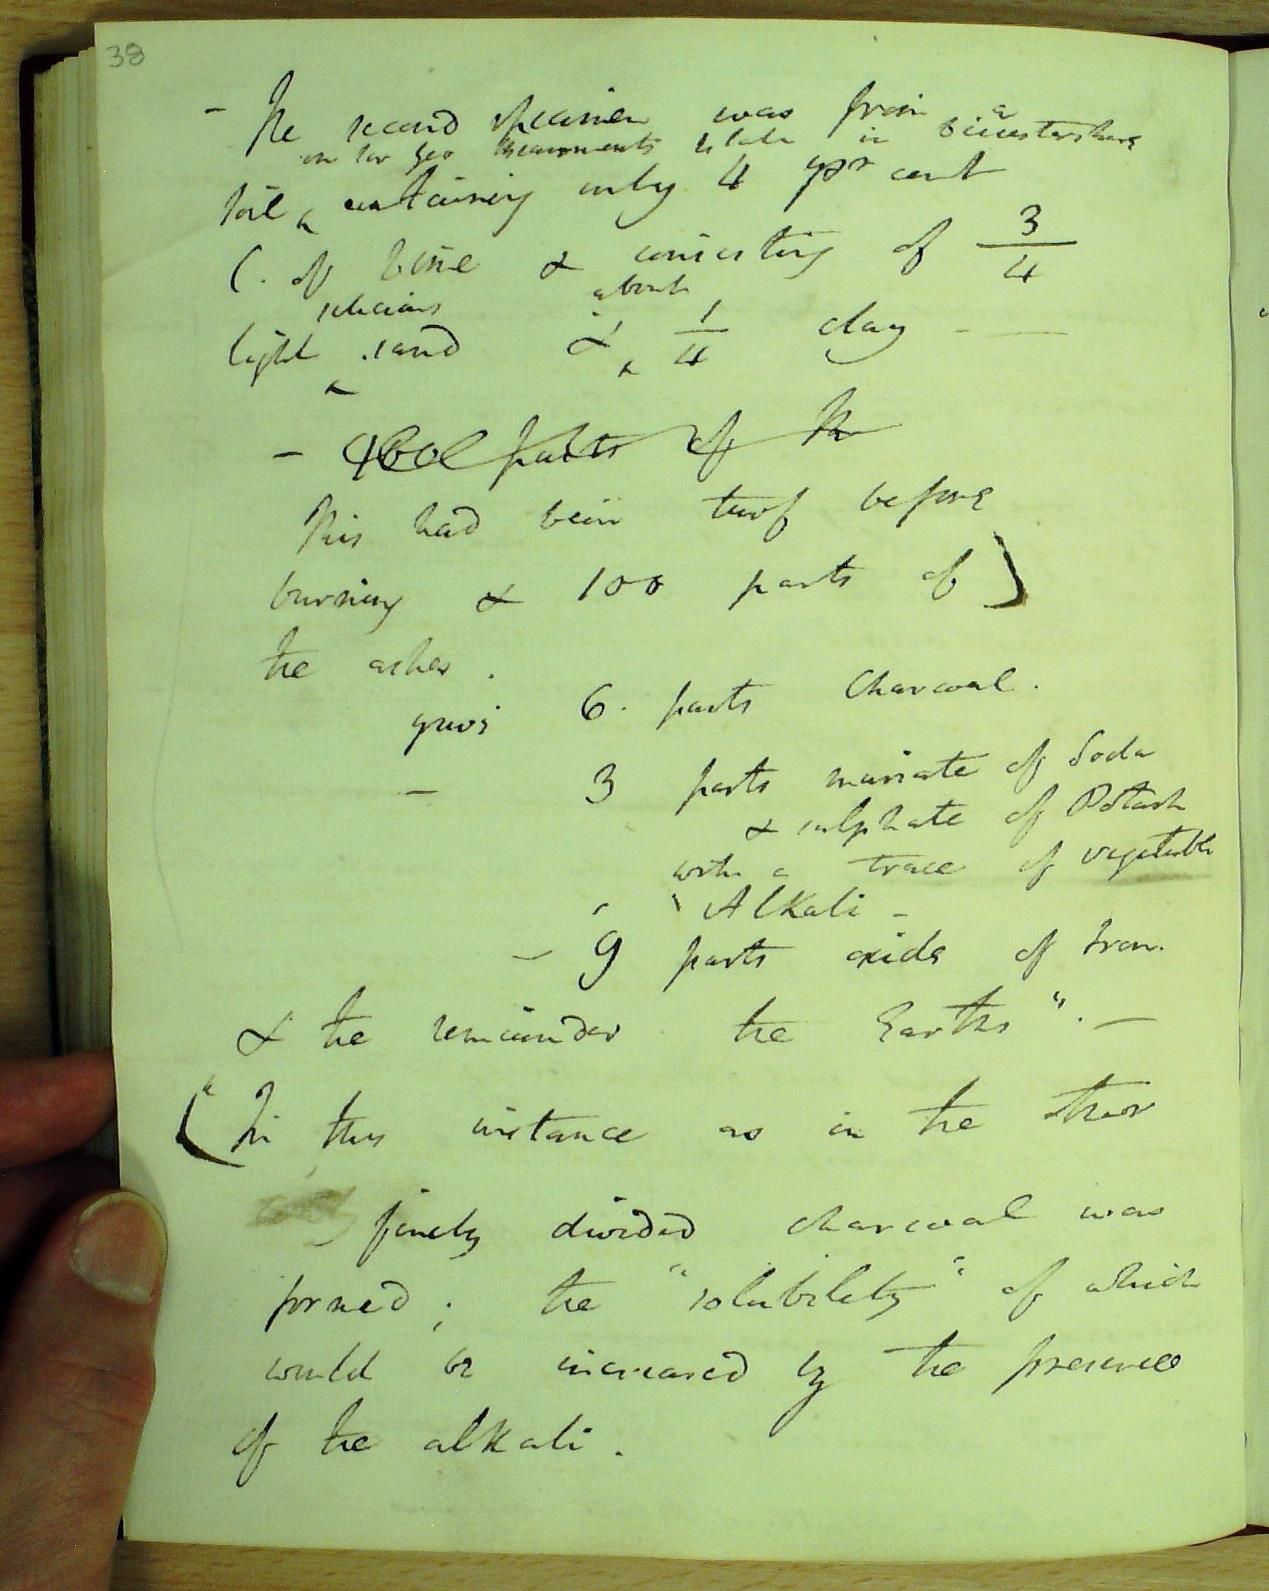 38
- The second specimen was from a
on Mr Beaumonts estate in Leicestershire
soil containing only 4 per cent
(. of lime & consisting of 3/4
silicious about
light sand & 1/4 clay -
- 4600 parts of the
This had been turf before
burning & 100 parts of )
the ashes.
gave 6. parts Charcoal.
- 3 parts muriate of Soda
& sulphate of Potash
with a trace of vegetable
Alkali -
- 9 parts oxide of Iron.
& the remainder the Earths". -
("In this instance as in the other
finely divided charcoal was
formed; the "solubility" of which
would be increased by the presence
of the alkali.